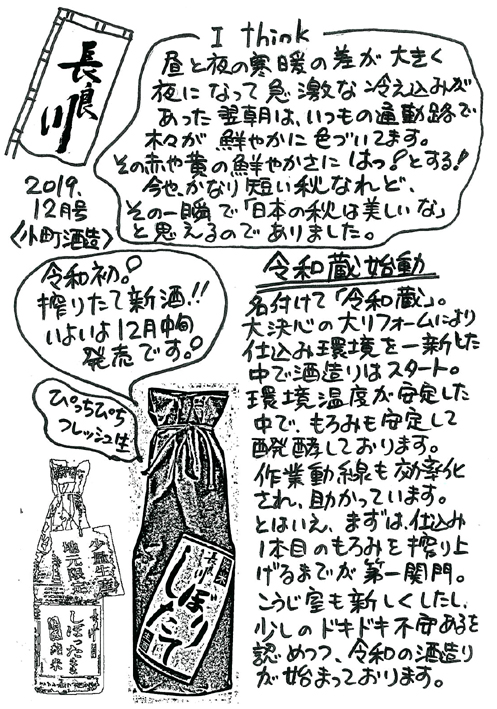 長良川
2019.
12月号
〈小町酒造〉
I think
昼と夜の寒暖の差が大きく
夜になって急激な冷え込みが
あった翌朝は、いつもの通勤路で
木々が鮮やかに色づいてます。
その赤や黄の鮮やかさにはっ!とする!
今や、かなり短い秋なれど、
その一瞬で「日本の秋は美しいな」
と思えるのでありました。
令和初。
搾りたて新酒!!
いよいよ12月中旬
発売です。
ぴっちぴち
フレッシュ生
長良川
しぼり
たて
少量生産
地元限定
しぼりたて
令和蔵始動
名付けて「令和蔵」。
大決心の大リフォームにより
仕込み環境を一新した
中で酒造りはスタート。
環境温度が安定した
中で、もろみも安定して
醗酵しております。
作業動線も効率化
され、助かっています。
とはいえ、まずは、仕込み
1本目のもろみを搾り上
げるまでが第一関門。
こうじ室も新しくしたし、
少しのドキドキ不安あるを
認めつつ、令和の酒造り
が始まっております。